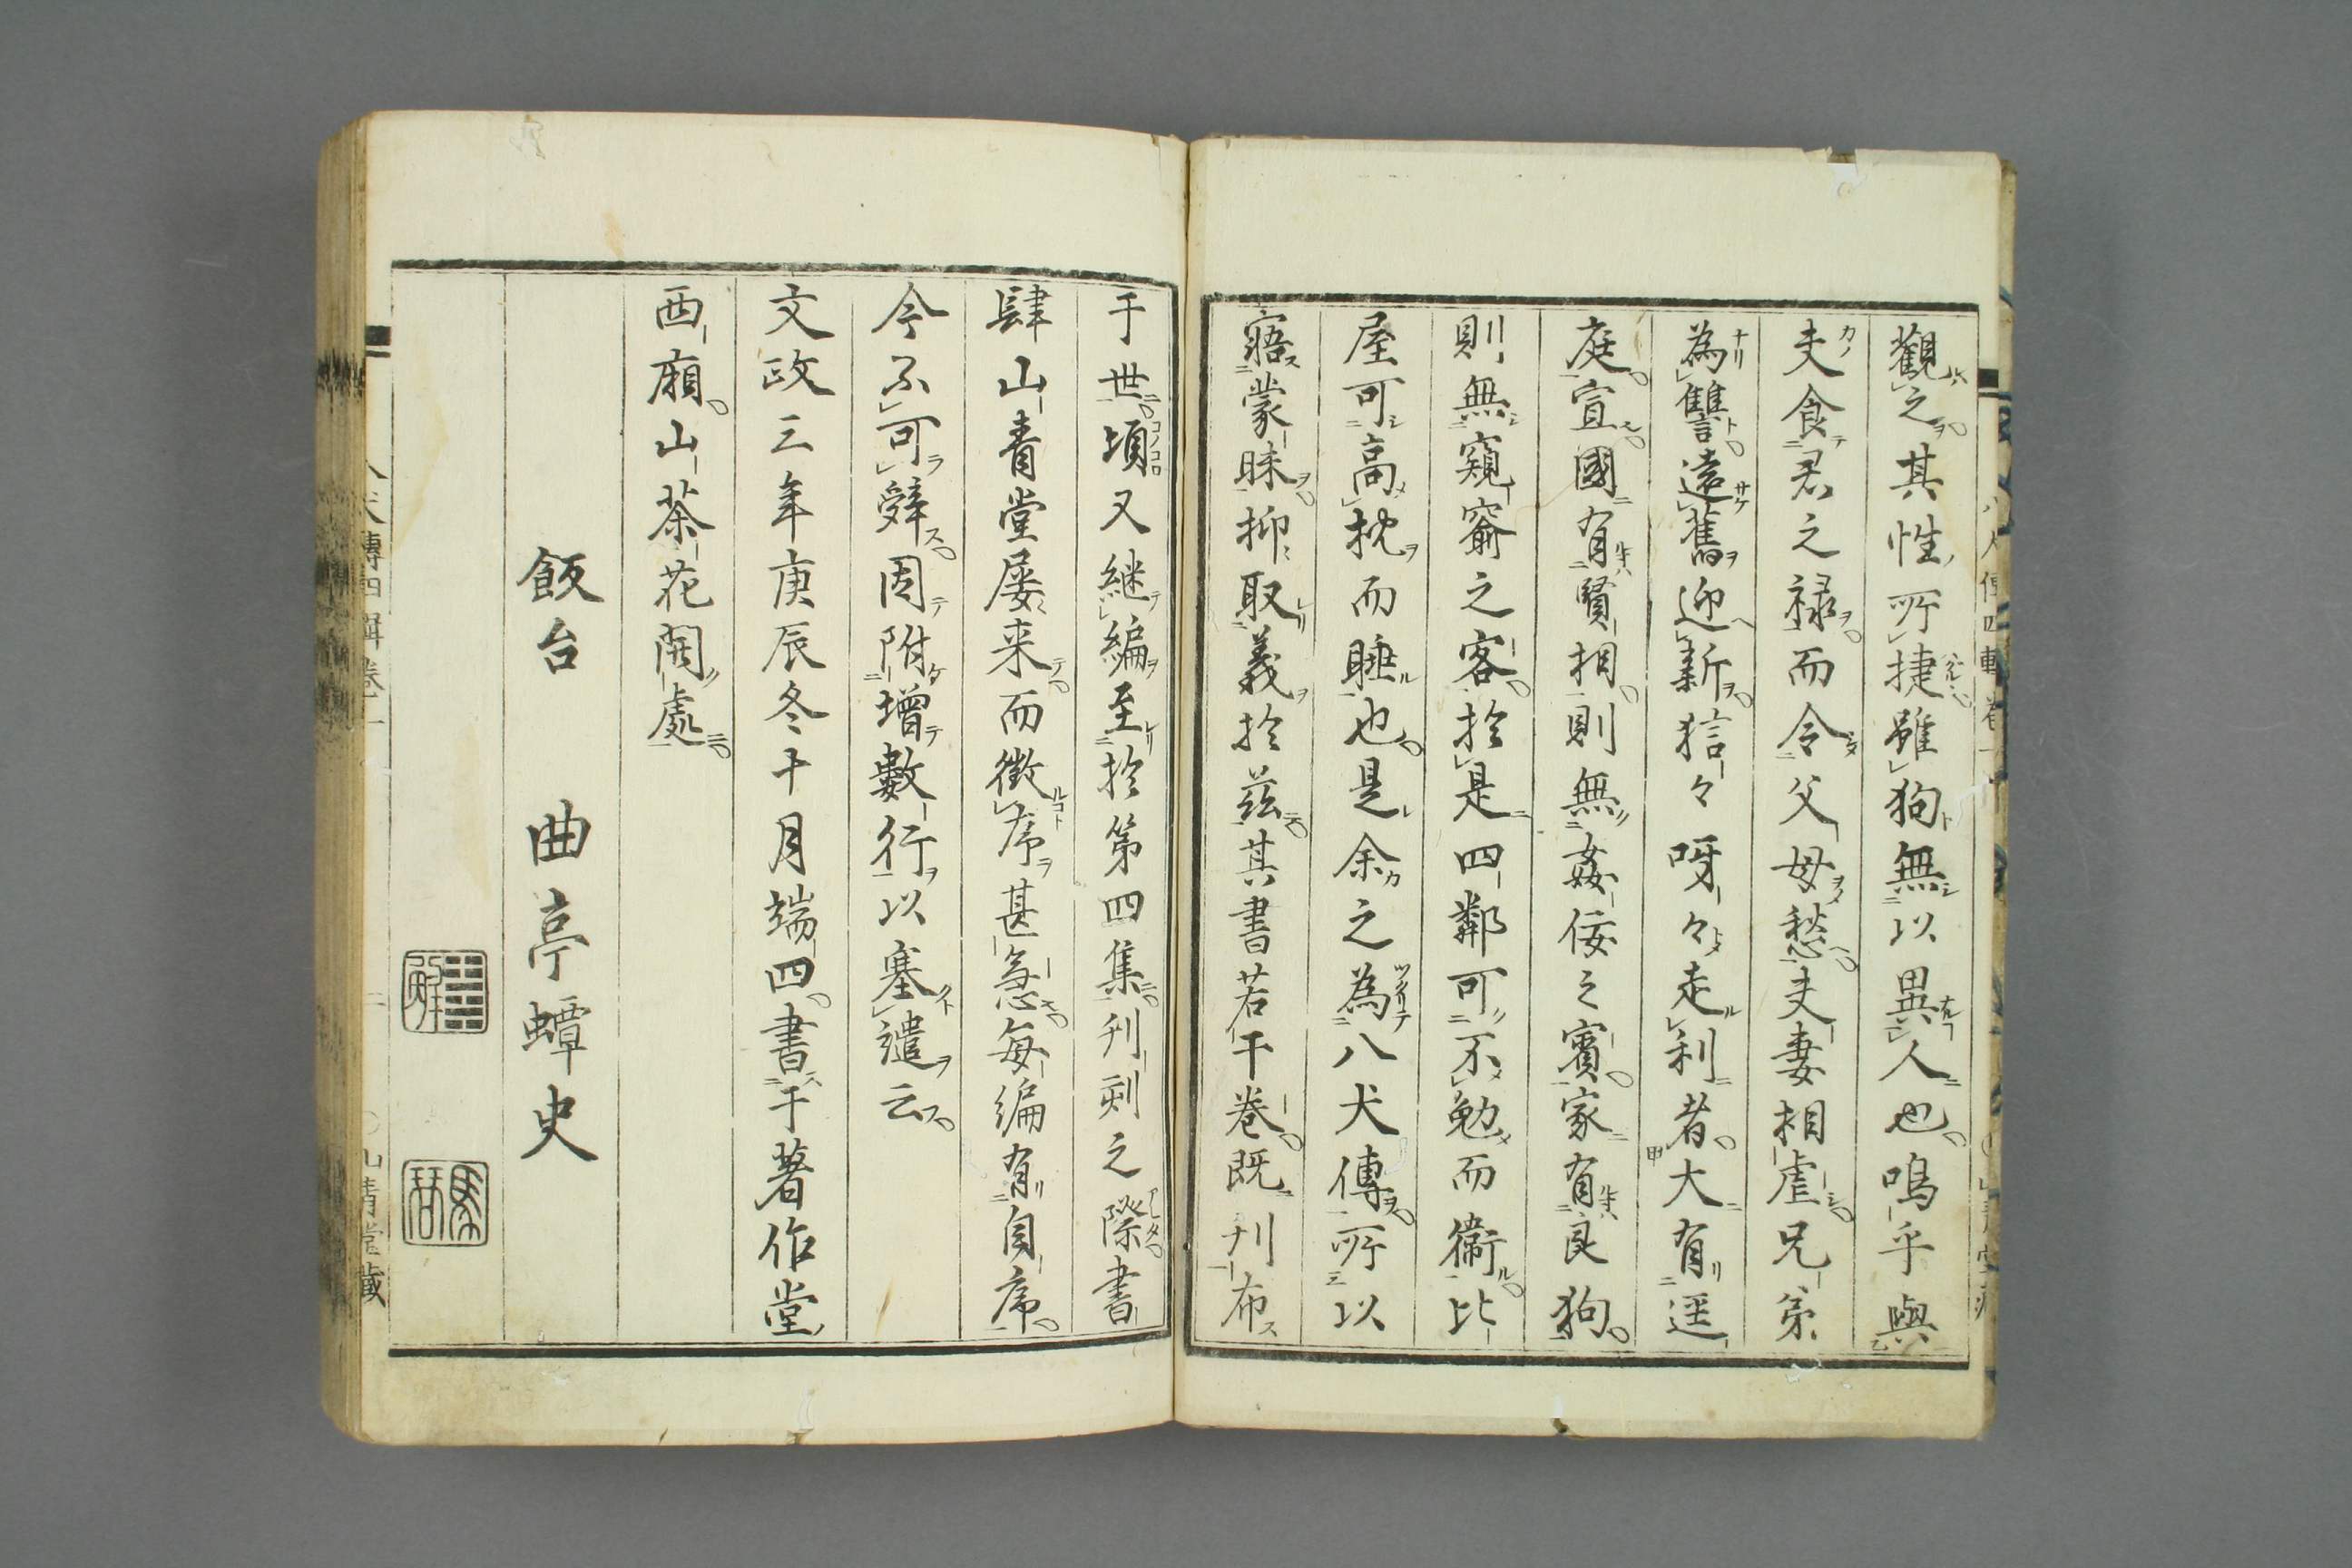 觀之其性所捷雖狗無以異人也嗚乎與
夫食君之禄而令父母愁夫妻相虐兄弟
為讐遠舊迎新狺々呀々走利者大有逕
庭宣國有賢相則無姦佞之賓家有良狗
則無窺窬之客於是四鄰可不勉而衞比
屋可高枕而睡也是余之為八犬傳所以
寤蒙昧抑取義於茲其書若干卷既刊布
于世頃又継編至於第四集刊刻之際書
肆山青堂屡来而徴序甚急毎編有自序
今不可辤因附增數行以塞譴云
文政三年庚辰冬十月端四書于著作堂
西廂山茶花開處
飯台 曲亭蟫史
解
馬琴
八犬傳四輯卷一
山青堂藏